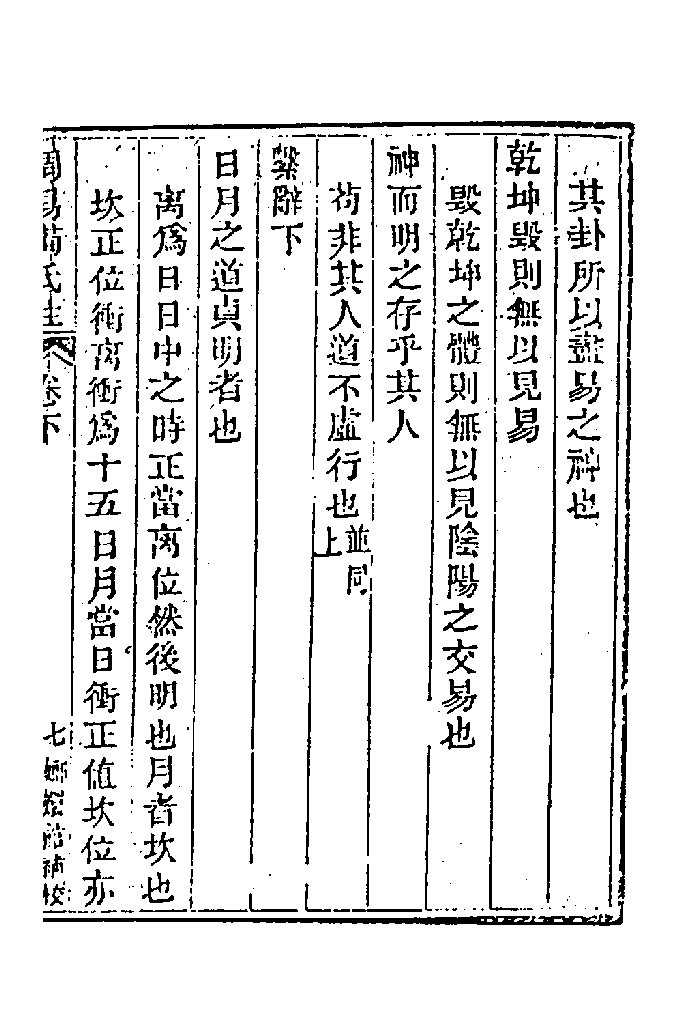 其卦所以盡易之神也
乾坤毀則無以見易
毀乾坤之體則無以見陰陽之交易也
神而明之存乎其人
苟非其人道不虛行也並同上
繫辭下
日月之道貞明者也
离爲日日中之時正當离位然後明也月者坎也
坎正位衝离衝爲十五日月當日衝正值坎位亦
周易荀氏注 卷下
七 嫏嬛館補校